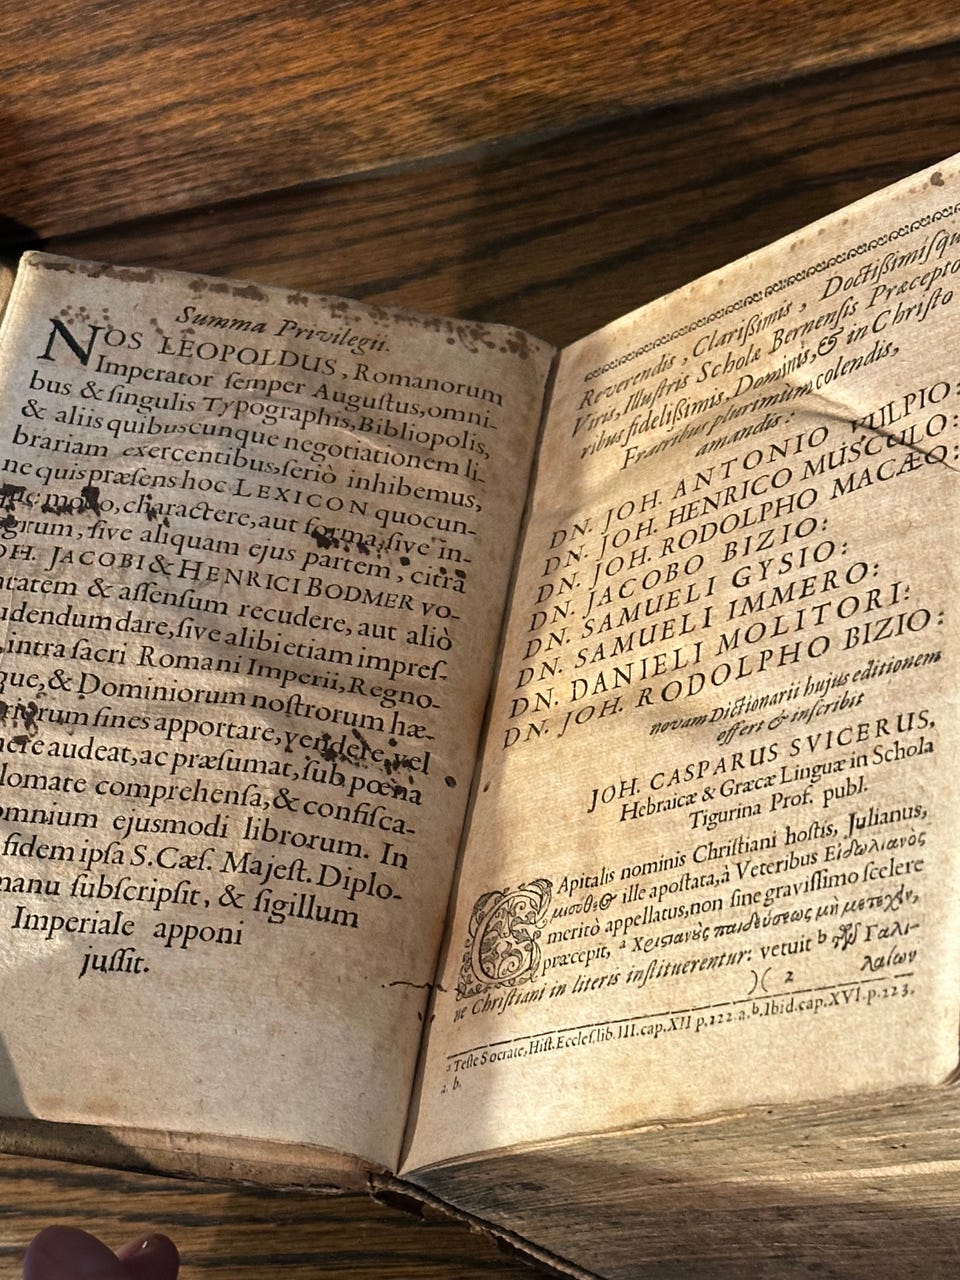 Summa Privilegii.
NOS LEOPOLDUS, Romanorum
Imperator ſemper Auguſtus, omni-
bus & ſingulis Typographis, Bibliopolis,
& aliis quibuscunque negotiationem li-
brariam exercentibus, ſeriò inhibemus,
ne quis præſens hoc LEXICON quocun-
modo, charactere, aut forma, ſive in-
ſive aliquam ejus partem, citra
JACOBI & HENRICI BODMER vo-
& aſſenſum recudere, aut aliò
dare, ſive alibi etiam impreſ-
intra ſacri Romani Imperii, Regno-
& Dominiorum noſtrorum hæ-
fines apportare, vendere, vel
audeat, ac præſumat, ſub pœna
comprehenſa, & confiſca-
ejusmodi librorum. In
fidem ipſa S. Cæſ. Majeſt. Diplo-
manu ſubſcripſit, & ſigillum
Imperiale apponi
juſſit.
Reverendis, Clarißimis, Doctißimiſqu
Viris, Illuſtris Scholæ Bernenſis Præcepto
ribus fidelißimis, Dominis, & in Chriſto
Fratribus plurimùm colendis,
amandis:
DN. JOH. ANTONIO VULPIO:
DN. JOH. HENRICO MUSCULO:
DN. JOH. RODOLPHO MACÆO:
DN. JACOBO BIZIO:
DN. SAMUELI GYSIO:
DN. SAMUELI IMMERO:
DN. DANIELI MOLITORI:
DN. JOH. RODOLPHO BIZIO:
novam Dictionarii hujus editionem
offert & inſcribit
JOH. CASPARUS SVICERUS,
Hebraicæ & Græcæ Linguæ in Schola
Tigurina Prof. publ.
CApitalis nominis Chriſtiani hoſtis, Julianus,
μισόθεος ille apoſtata, à Veteribus Εἰδωλιανὸς
meritò appellatus, non ſine graviſſimo ſcelere
præcepit, ᵃ Χριστιανοὺς παιδεύσεως μὴ μετέχειν,
ne Chriſtiani in literis inſtituerentur: vetuit ᵇ τῶν Γαλι-
)( 2 λαίων
ᵃ Teſte Socrate, Hiſt. Eccleſ. lib. III. cap. XII p. 222. a. ᵇ. Ibid. cap. XVI. p. 223.
a. b.